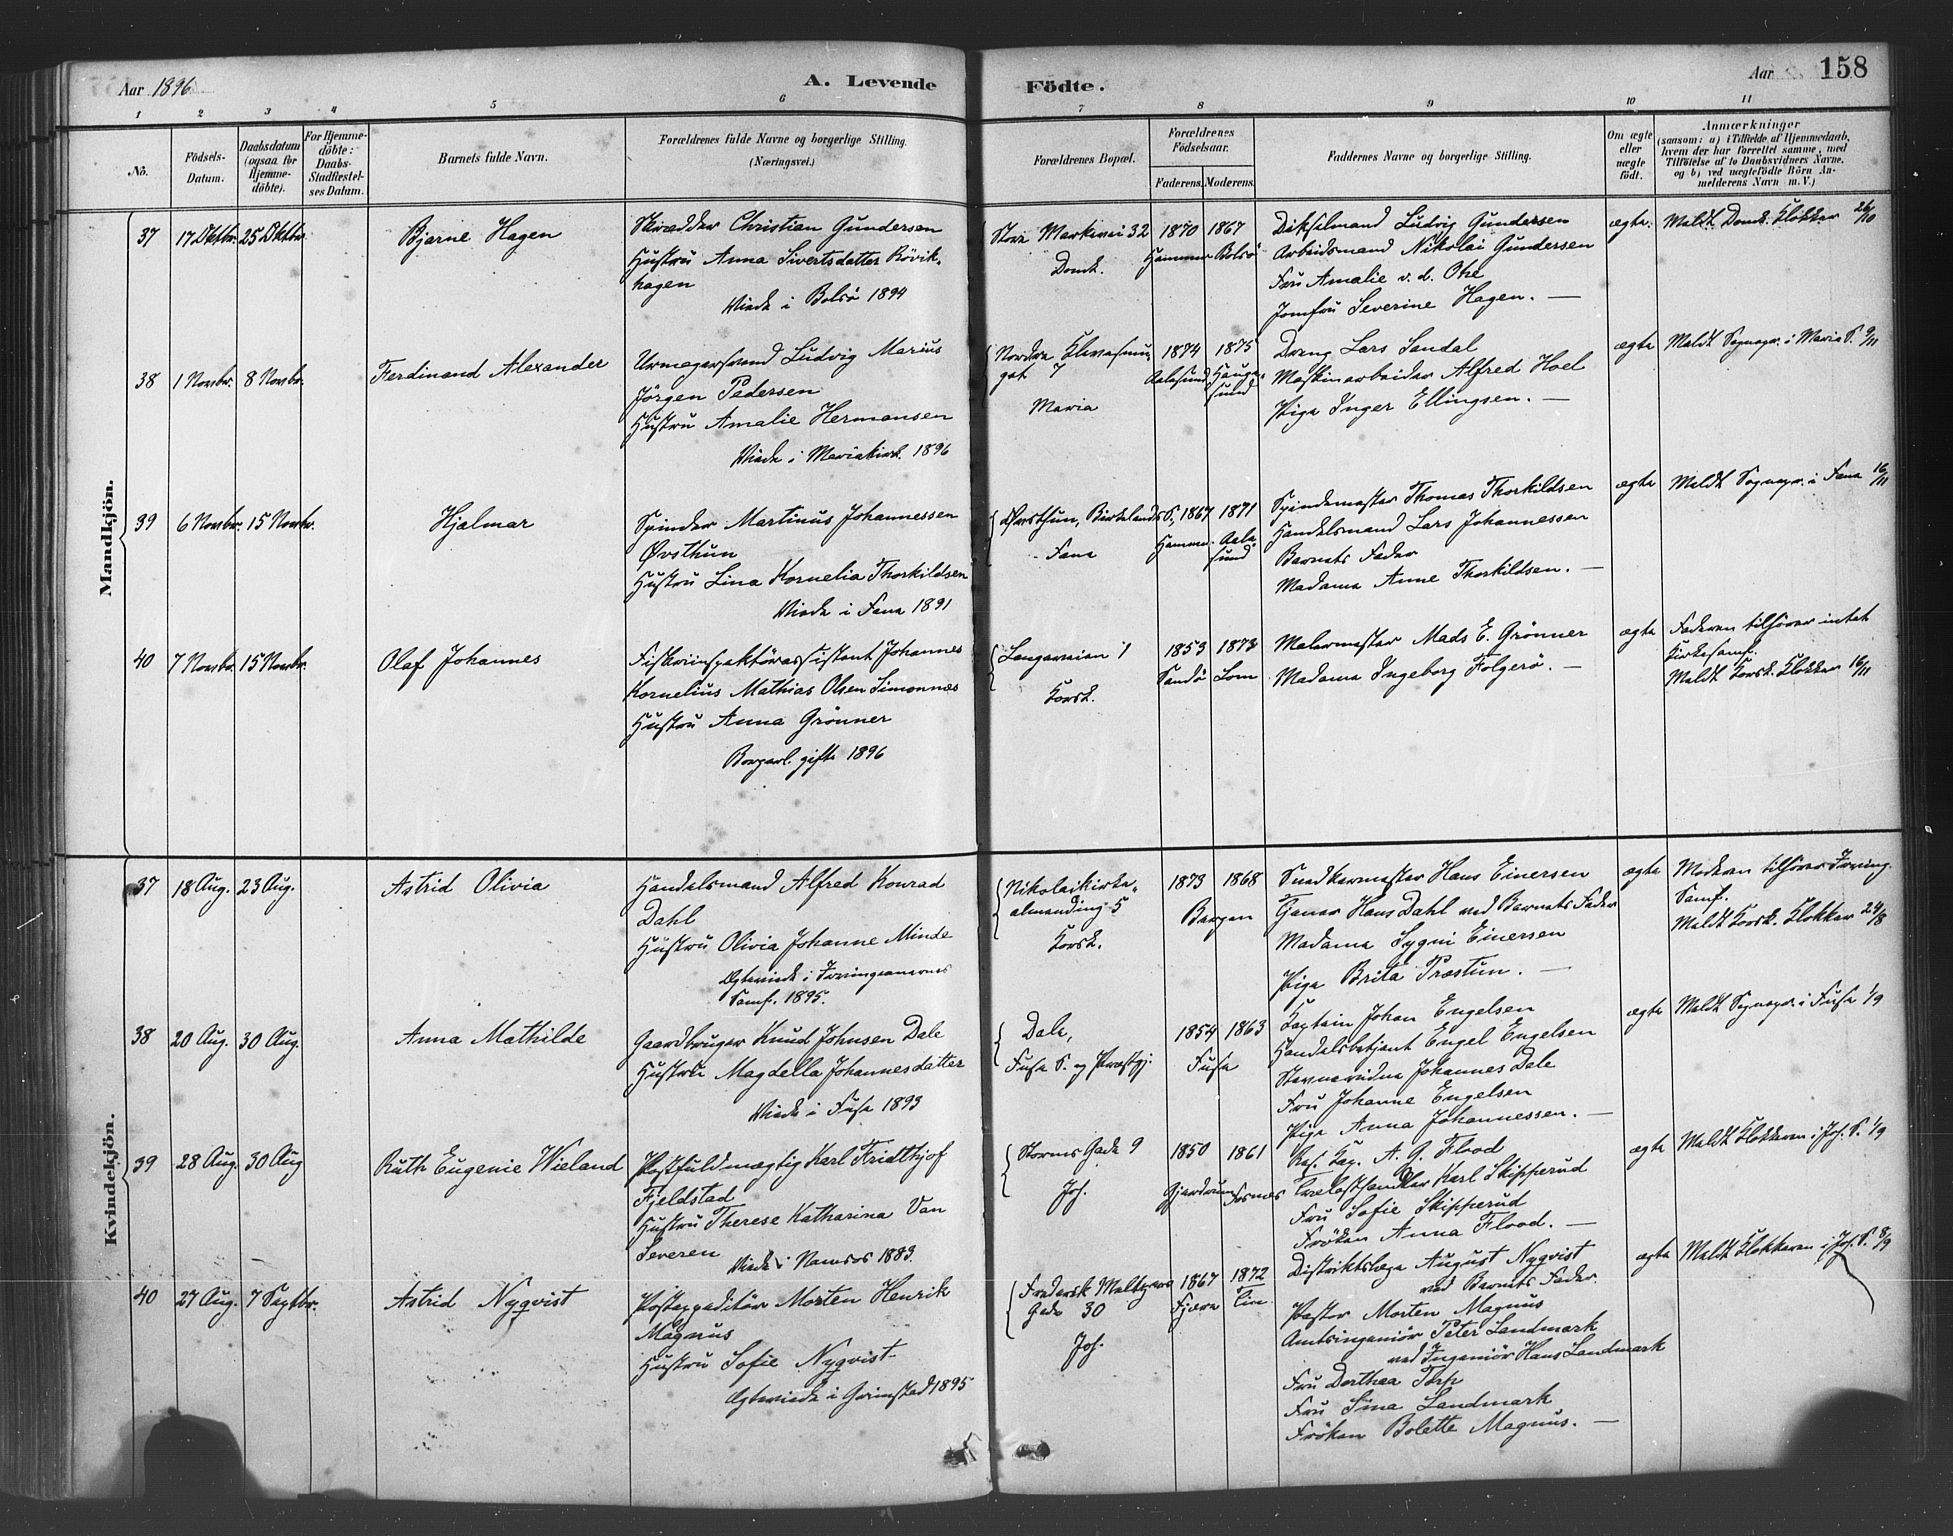 Aar 1896
A. Levende
Födte.
Aar
158
1 2 3 4 5 6 7 8 9 10 11
No.
Födsels-
Datum.
Daabsdatum
(ogsaa for
Hjemme-
döbte).
For Hjemme-
döbte:
Daabs-
Stadfæstel-
ses Datum.
Barnets fulde Navn.
Forældrenes fulde Navne og borgerlige Stilling.
(Næringsvei.)
Forældrenes Bopæl.
Forældrenes
Födselsaar.
Faderens. Moderens.
Faddernes Navne og borgerlige Stilling.
Om ægte
eller
uægte
født.
Anmærkninger
(saasom: a) i Tilfælde af Hjemmedaab,
hvem der har forrettet samme, med
Tilföielse af to Daabsvidners Navne,
og b) ved uægtefödte Börn An-
melderens Navn m. V.)
Mandkjön.
37
17 Oktbr.
25 Oktbr.
Bjarne Hagen
Skrædder Christian Gundersen
Hustru Anna Sivertsdatter Rövik-
hagen
Viede i Bolsö 1894
Store Markevei 32
Domk.
1870
Hammer
1867
Bolsö
Dikselmand Ludvig Gundersen
Arbeidsmand Nikolai Gundersen
Fru Amalie v. d. Ohe
Jomfru Severine Hagen. —
ægte.
Meldt Domk. Klokker 26/10
38
1 Novbr.
8 Novbr.
Ferdinand Alexander
Urmagersvend Ludvig Marius
Jörgen Pedersen
Hustru Amalie Hermansen
Viede i Mariakirk. 1896
Nordre Klevesmu-
get 7
Maria
1874
Aalesund
1875
Hauge-
sund
Dreng Lars Sandal
Maskinarbeider Alfred Hoel
Pige Inger Ellingsen. —
ægte
Meldt Sognepr. i Maria S. 9/11
39
6 Novbr.
15 Novbr.
Hjalmar
Spinder Martinus Johannessen
Øvsthun
Hustru Lina Kornelia Thorkildsen
Viede i Fana 1891
Øvsthun, Birkelands S.,
Fana
1867
Hammer
1871
Aale-
sund
Spindemester Thomas Thorkildsen
Handelsmand Lars Johannessen
Barnets Fader
Madame Anne Thorkildsen. —
ægte
Meldt Sognepr. i Fana 16/11
40
7 Novbr.
15 Novbr.
Olaf Johannes
Fiskeriinspektörassistent Johannes
Kornelius Mathias Olsen Simonnæs
Hustru Anna Grönner
Borgerl. gifte 1896
Langeveien 1
Korsk.
1853
Sandö
1873
Lom
Malermester Mads E. Grönner
Madame Ingeborg Folgerö. —
ægte
Faderen tilhører intet
Kirkesamf.
Meldt Korsk. Klokker 16/11
Kvindekjön.
37
18 Aug.
23 Aug.
Astrid Olivia
Handelsmand Alfred Konrad
Dahl
Hustru Olivia Johanne Minde
Ægteviede i Irvingeanernes
Samf. 1895.
Nikolaikirke-
almending 5
Korsk.
1873 1868
Bergen
Snedkermester Hans Einersen
Tjener Hans Dahl ved Barnets Fader
Madame Sygni Einersen
Pige Brita Præstun. —
ægte
Moderen tilhører Irving.
Samf.
Meldt Korsk. Klokker 24/8
38
20 Aug.
30 Aug.
Anna Mathilde
Gaardbruger Knud Johnsen Dale
Hustru Magdella Johannesdatter
Viede i Fusa 1893
Dale,
Fusa S. og Præstgj.
1854 1863
Fusa
Kaptein Johan Engelsen
Handelsbetjent Engel Engelsen
Johannes Dale
Fru Johanne Engelsen
Pige Anna Johannessen. —
ægte
Meldt Sognepr. i Fusa 1/9
39
28 Aug.
30 Aug
Ruth Eugenie Wieland
Postfuldmægtig Karl Fridthjof
Fjeldstad
Hustru Therese Katharina Van
Severen
Viede i Namsos 1883.
Storms Gade 9
Joh.
1850
Gjerdrum
1861
Fosnes
Res. Kap. A. G. Flood
Trælasthandler Karl Skipperud
Fru Sofie Skipperud
Fröken Anna Flood. —
ægte
Meldt Klokkeren i Joh. S. 1/9
40
27 Aug.
7 Septbr.
Astrid Nyqvist
Postexpeditör Morten Henrik
Magnus
Hustru Sofie Nyqvist
Ægteviede i Grimstad 1895
Frederik Meltzers
Gade 30
Joh.
1867
Fjære
1872
Distriktslæge August Nyqvist
ved Barnets Fader.
Pastor Morten Magnus
Amtsingeniør Peter Landmark
ved Ingeniör Hans Landmark
Fru Dorthea Torp
Fru Sina Landmark
Fröken Bolette Magnus. —
ægte
Meldt Klokkeren i Joh. S. 8/9